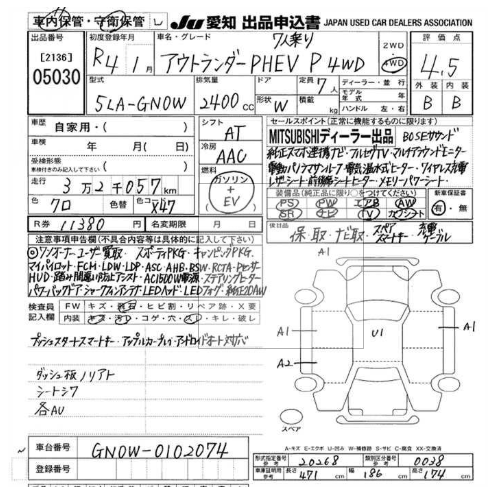 車内保管・守衛保管 JU 愛知 出品申込書 JAPAN USED CAR DEALERS ASSOCIATION
出品番号 初度登録年月 車名・グレード 7人乗り 2WD 評価点
[2136] R4年1月 アウトランダーPHEV P 4WD 4WD 4.5
05030 型式 排気量 ドア 定員 7人 ディーラー・並行 外装 内装
5LA-GN0W 2400cc 形状 W 積載 kg モデル年式 年 ハンドル 左・右 B B
車歴 自家用・( ) シフト AT セールスポイント(正常に機能するものに限ります)
車検 年 月(日) 冷房 AAC MITSUBISHIディーラー出品 BOSEサウンド
純正スマホ連携ナビ・フルセグTV・マルチアラウンドモニター
受検形態 ( ) 燃料 ガソリン+EV 電動パノラマサンルーフ 電気温水式ヒーター・ワイヤレス充電
走行 3万2千057km レザーシート 前後席シートヒーター メモリーパワーシート
装備品(純正品に限り○をつけてください) 新車保証書
色 クロ 色替 カラーNo X47 PS PW エアB AW 有・無
SR ナビ TV カワシート
R券 11380円 名変期限 年 月 日 後日品 保・取・ナビ取・スペアスマートキー・充電ケーブル
注意事項申告欄(不具合内容等は具体的に記入)
◎ワンオーナーユーザー買取 スポーティPKG・キャンピングPKG
マイパイロット・FCM・LDW・LDP・ASC・AHB・BSW・RCTA・Pセンサ
HUD・踏み間違い防止アシスト・AC1500W電源・ステアリングヒーター
パワーバックドア・シャークフィンアンテナ・LEDヘッド・LEDフォグ・純正20AW
検査員記入欄 FW キズ・飛石・ヒビ割・リペア跡・X要
内装 キズ・汚レ・コゲ・穴・スレ・キレ・破レ
プッシュスタートスマートキー・アップルカープレイ・アンドロイドオート対応
ダッシュ板ノリアト
シートシワ
各AU
A1
A1 U1 A1
A2
スペア
A-キズ E-エクボ U-凹ム W-補修跡 S-サビ C-腐蝕 XX-交換済
車台番号 GN0W-0102074
登録番号
型式指定番号 参考 20268 類別区分番号 参考 0038
車庫証明用 参考 長さ 471cm 幅 186cm 高さ 174cm